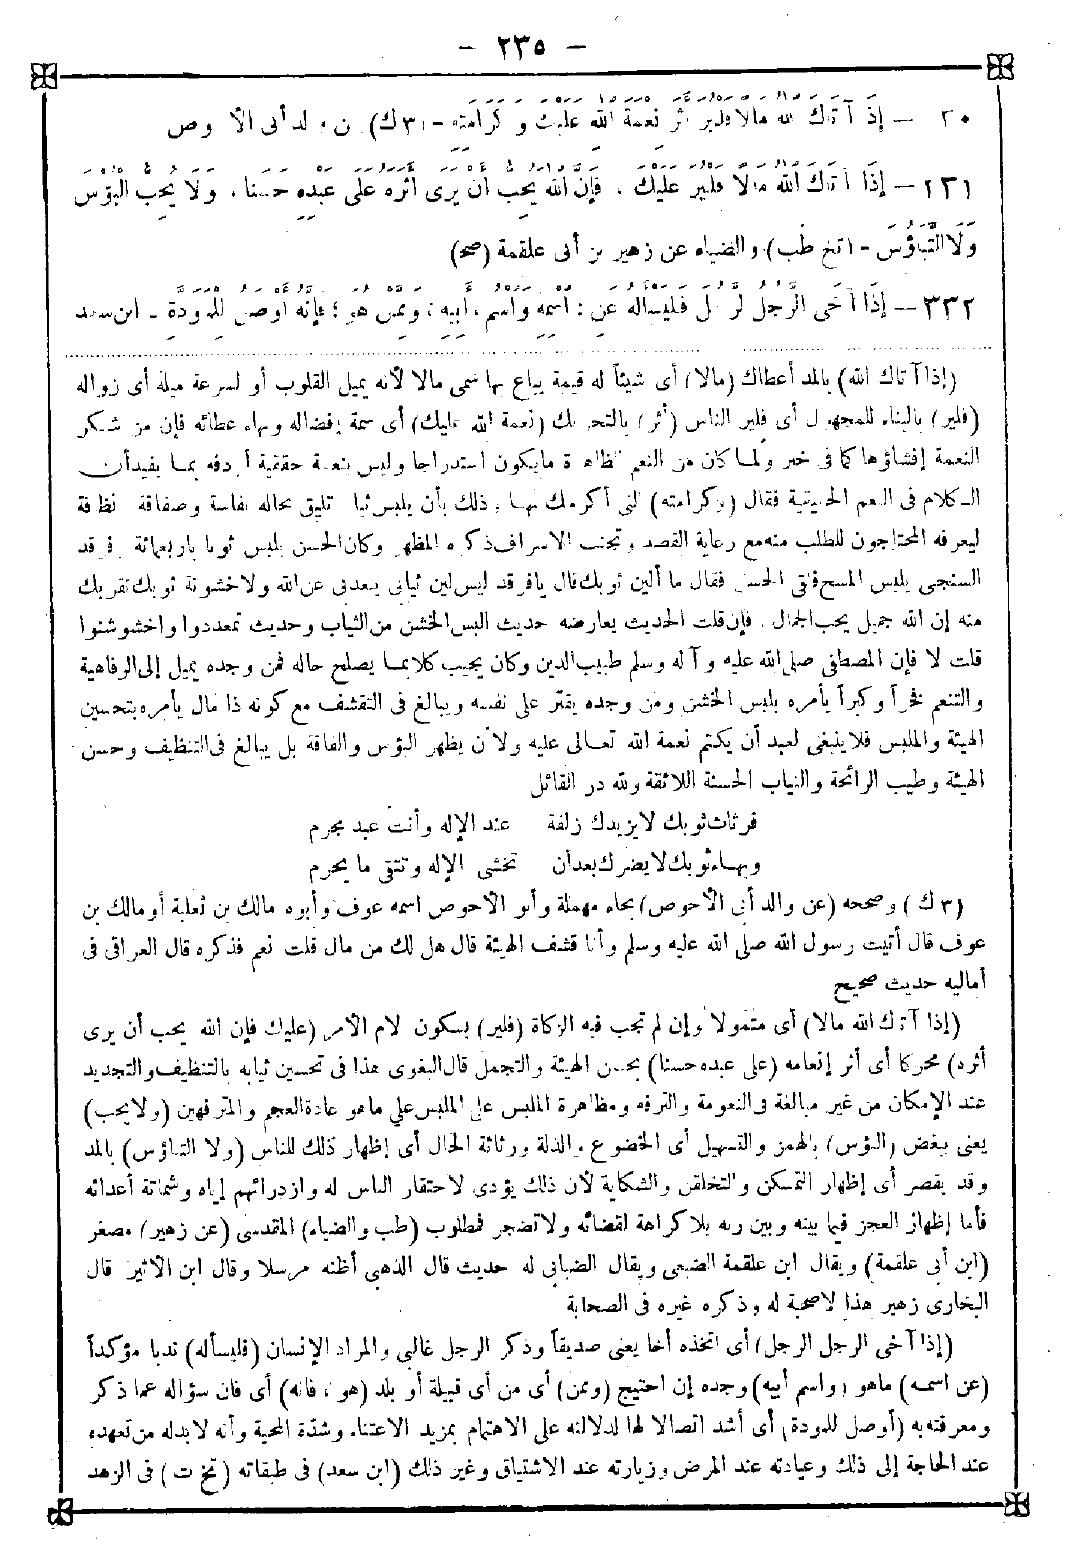 - ٢٣٥ -
٣٠ - إِذَا آتَاكَ اللهُ مَالًا فَلْيُرَ أَثَرُ نِعْمَةِ اللهِ عَلَيْكَ وَكَرَامَتِهِ - (٣ ك) عن والد أبى الأحوص
٣٣١ - إِذَا آتَاكَ اللهُ مَالًا فَلْيُرَ عَلَيْكَ ، فَإِنَّ اللهَ يُحِبُّ أَنْ يَرَى أَثَرَهُ عَلَى عَبْدِهِ حَسَنًا ، وَلَا يُحِبُّ الْبُؤْسَ
وَلَا التَّبَاؤُسَ - (تخ طب) والضياء عن زهير بن أبى علقمة (صح)
٣٣٢ - إِذَا آخَى الرَّجُلُ الرَّجُلَ فَلْيَسْأَلْهُ عَنِ : اسْمِهِ وَاسْمِ أَبِيهِ ، وَمِمَّنْ هُوَ ؛ فَإِنَّهُ أَوْصَلُ لِلْمَوَدَّةِ - ابن سعد
(إذا آتاك الله) بالمد أعطاك (مالا) أى شيئاً له قيمة يباع بها سمى مالا لأنه يميل القلوب أو لسرعة ميله أى زواله
(فلير) بالبناء للمجهول أى فلير الناس (أثر) بالتحريك (نعمة الله عليك) أى سمة إفضاله وبهاء عطائه فإن من شكر
النعمة إفشاؤها كما فى خبر ولما كان من النعم الظاهرة ما يكون استدراجا وليس بنعمة حقيقية أردفه بما يفيد أن
الكلام فى النعم الحقيقية فقال (وكرامته) التى أكرمك بها وذلك بأن يلبس ثيابا تليق بحاله نفاسة وصفاقة ونظافة
ليعرفه المحتاجون للطلب منه مع رعاية القصد وتجنب الاسراف ذكره المظهر وكان الحسن يلبس ثوبا باربعمائة وفرقد
السنجى يلبس المسح فلقى الحسن فقال ما ألين ثوبك قال يا فرقد ليس لين ثيابى يبعدنى عن الله ولا خشونة ثوبك تقربك
منه إن الله جميل يحب الجمال . فإن قلت الحديث يعارضه حديث البس الخشن من الثياب وحديث تمعددوا واخشوشنوا
قلت لا فإن المصطفى صلى الله عليه وآله وسلم طبيب الدين وكان يجيب كلا بما يصلح حاله فمن وجده يميل إلى الرفاهية
والتنعم فخراً وكبراً يأمره بلبس الخشن ومن وجده يقتر على نفسه ويبالغ فى التقشف مع كونه ذا مال يأمره بتحسين
الهيئة والملبس فلا ينبغى لعبد أن يكتم نعمة الله تعالى عليه ولا أن يظهر البؤس والفاقة بل يبالغ فى التنظيف وحسن
الهيئة وطيب الرائحة والثياب الحسنة اللائقة ولله در القائل
فرثاث ثوبك لا يزيدك زلفة عند الإله وأنت عبد مجرم
وبهاء ثوبك لا يضرك بعد أن تخشى الإله وتتقى ما يحرم
(٣ ك) وصححه (عن والد أبى الأحوص) بحاء مهملة وأبو الأحوص اسمه عوف وأبوه مالك بن ثعلبة أو مالك بن
عوف قال أتيت رسول الله صلى الله عليه وسلم وأنا قشف الهيئة قال هل لك من مال قلت نعم فذكره قال العراقى فى
أماليه حديث صحيح
(إذا آتاك الله مالا) أى متمولا وإن لم تجب فيه الزكاة (فلير) بسكون لام الأمر (عليك فإن الله يحب أن يرى
أثره) محركا أى أثر إنعامه (على عبده حسنا) بحسن الهيئة والتجمل قال البغوى هذا فى تحسين ثيابه بالتنظيف والتجديد
عند الإمكان من غير مبالغة فى النعومة والترفه ومظاهرة الملبس على الملبس على ما هو عادة العجم والمترفهين (ولا يحب)
يعنى يبغض (البؤس) بالهمز والتسهيل أى الخضوع والذلة ورثاثة الحال أى إظهار ذلك للناس (ولا التباؤس) بالمد
وقد يقصر أى إظهار التمسكن والتخلقن والشكاية لأن ذلك يؤدى لاحتقار الناس له وازدرائهم إياه وشماتة أعدائه
فأما إظهار العجز فيما بينه وبين ربه بلا كراهة لقضائه ولا تضجر فمطلوب (طب والضياء) المقدسى (عن زهير) مصغر
(ابن أبى علقمة) ويقال ابن علقمة الضبعى ويقال الضبابى له حديث قال الذهبى أظنه مرسلا وقال ابن الأثير قال
البخارى زهير هذا لا صحبة له وذكره غيره فى الصحابة
(إذا آخى الرجل الرجل) أى اتخذه أخا يعنى صديقاً وذكر الرجل غالبى والمراد الإنسان (فليسأله) ندبا مؤكداً
(عن اسمه) ما هو (واسم أبيه) وجده إن احتيج (وممن) أى من أى قبيلة أو بلد (هو ، فانه) أى فان سؤاله عما ذكر
ومعرفته به (أوصل للمودة) أى أشد اتصالا لها لدلالته على الاهتمام بمزيد الاعتناء وشدّة المحبة وأنه لا بد له من تعهده
عند الحاجة إلى ذلك وعيادته عند المرض وزيارته عند الاشتياق وغير ذلك (ابن سعد) فى طبقاته (تخ ت) فى الزهد